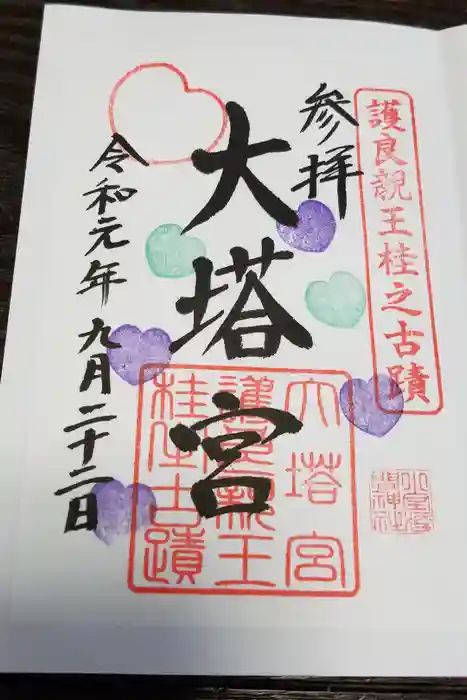 護良親王桂之古蹟
参拝
大塔宮
令和元年九月二十二日
大塔宮
護良親王
桂之古蹟